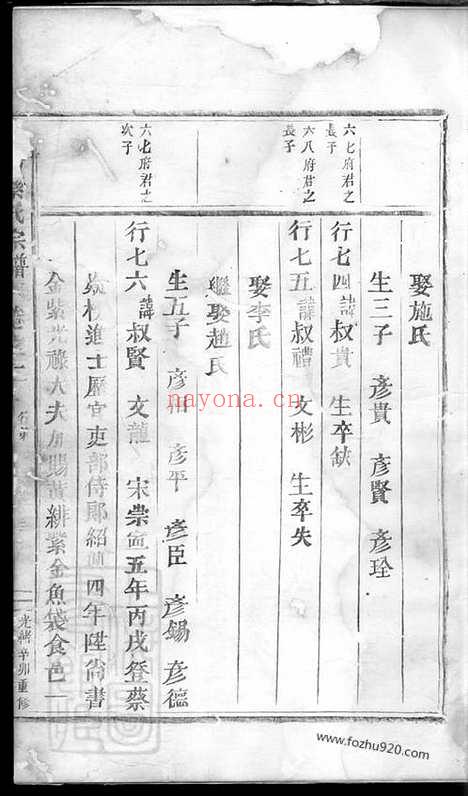 娶施氏
生三子 彥貴 彥賢 彥珓
六七府君之
長子
行七四諱叔貴 生卒缺
六八府君之
長子
行七五諱叔禮 文彬 生卒失
娶李氏
繼娶趙氏
生五子 彥相 彥平 彥臣 彥錫 彥德
六七府君之
次子
行七六諱叔賢 文龍 宋崇寧五年丙戌登蔡
榜進士歷官吏部侍郎紹興四年陞尚書
金紫光祿大夫加賜黃緋紫金魚袋食邑一
氏宗譜
光緒辛卯重修
nayona.cn
www.fozhu920.com